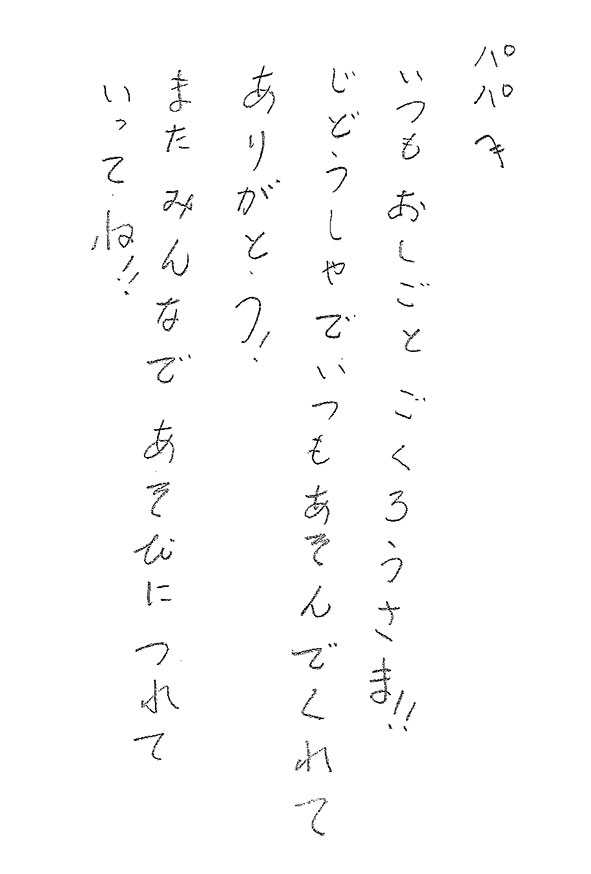 パパへ
いつも おしごと ごくろうさま!!
じどうしゃで いつもあそんでくれて
ありがとう!
また みんなで あそびに つれて
いってね!!